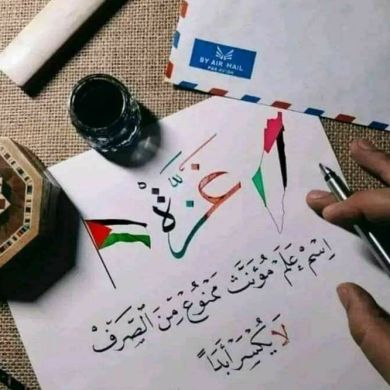 BY AIR MAIL
PAR AVION
غَزَّةُ
اِسْمُ عَلَمٍ مُؤَنَّثٌ مَمْنُوعٌ مِنَ الصَّرْفِ
لَا يُكْسَرُ أَبَدًا